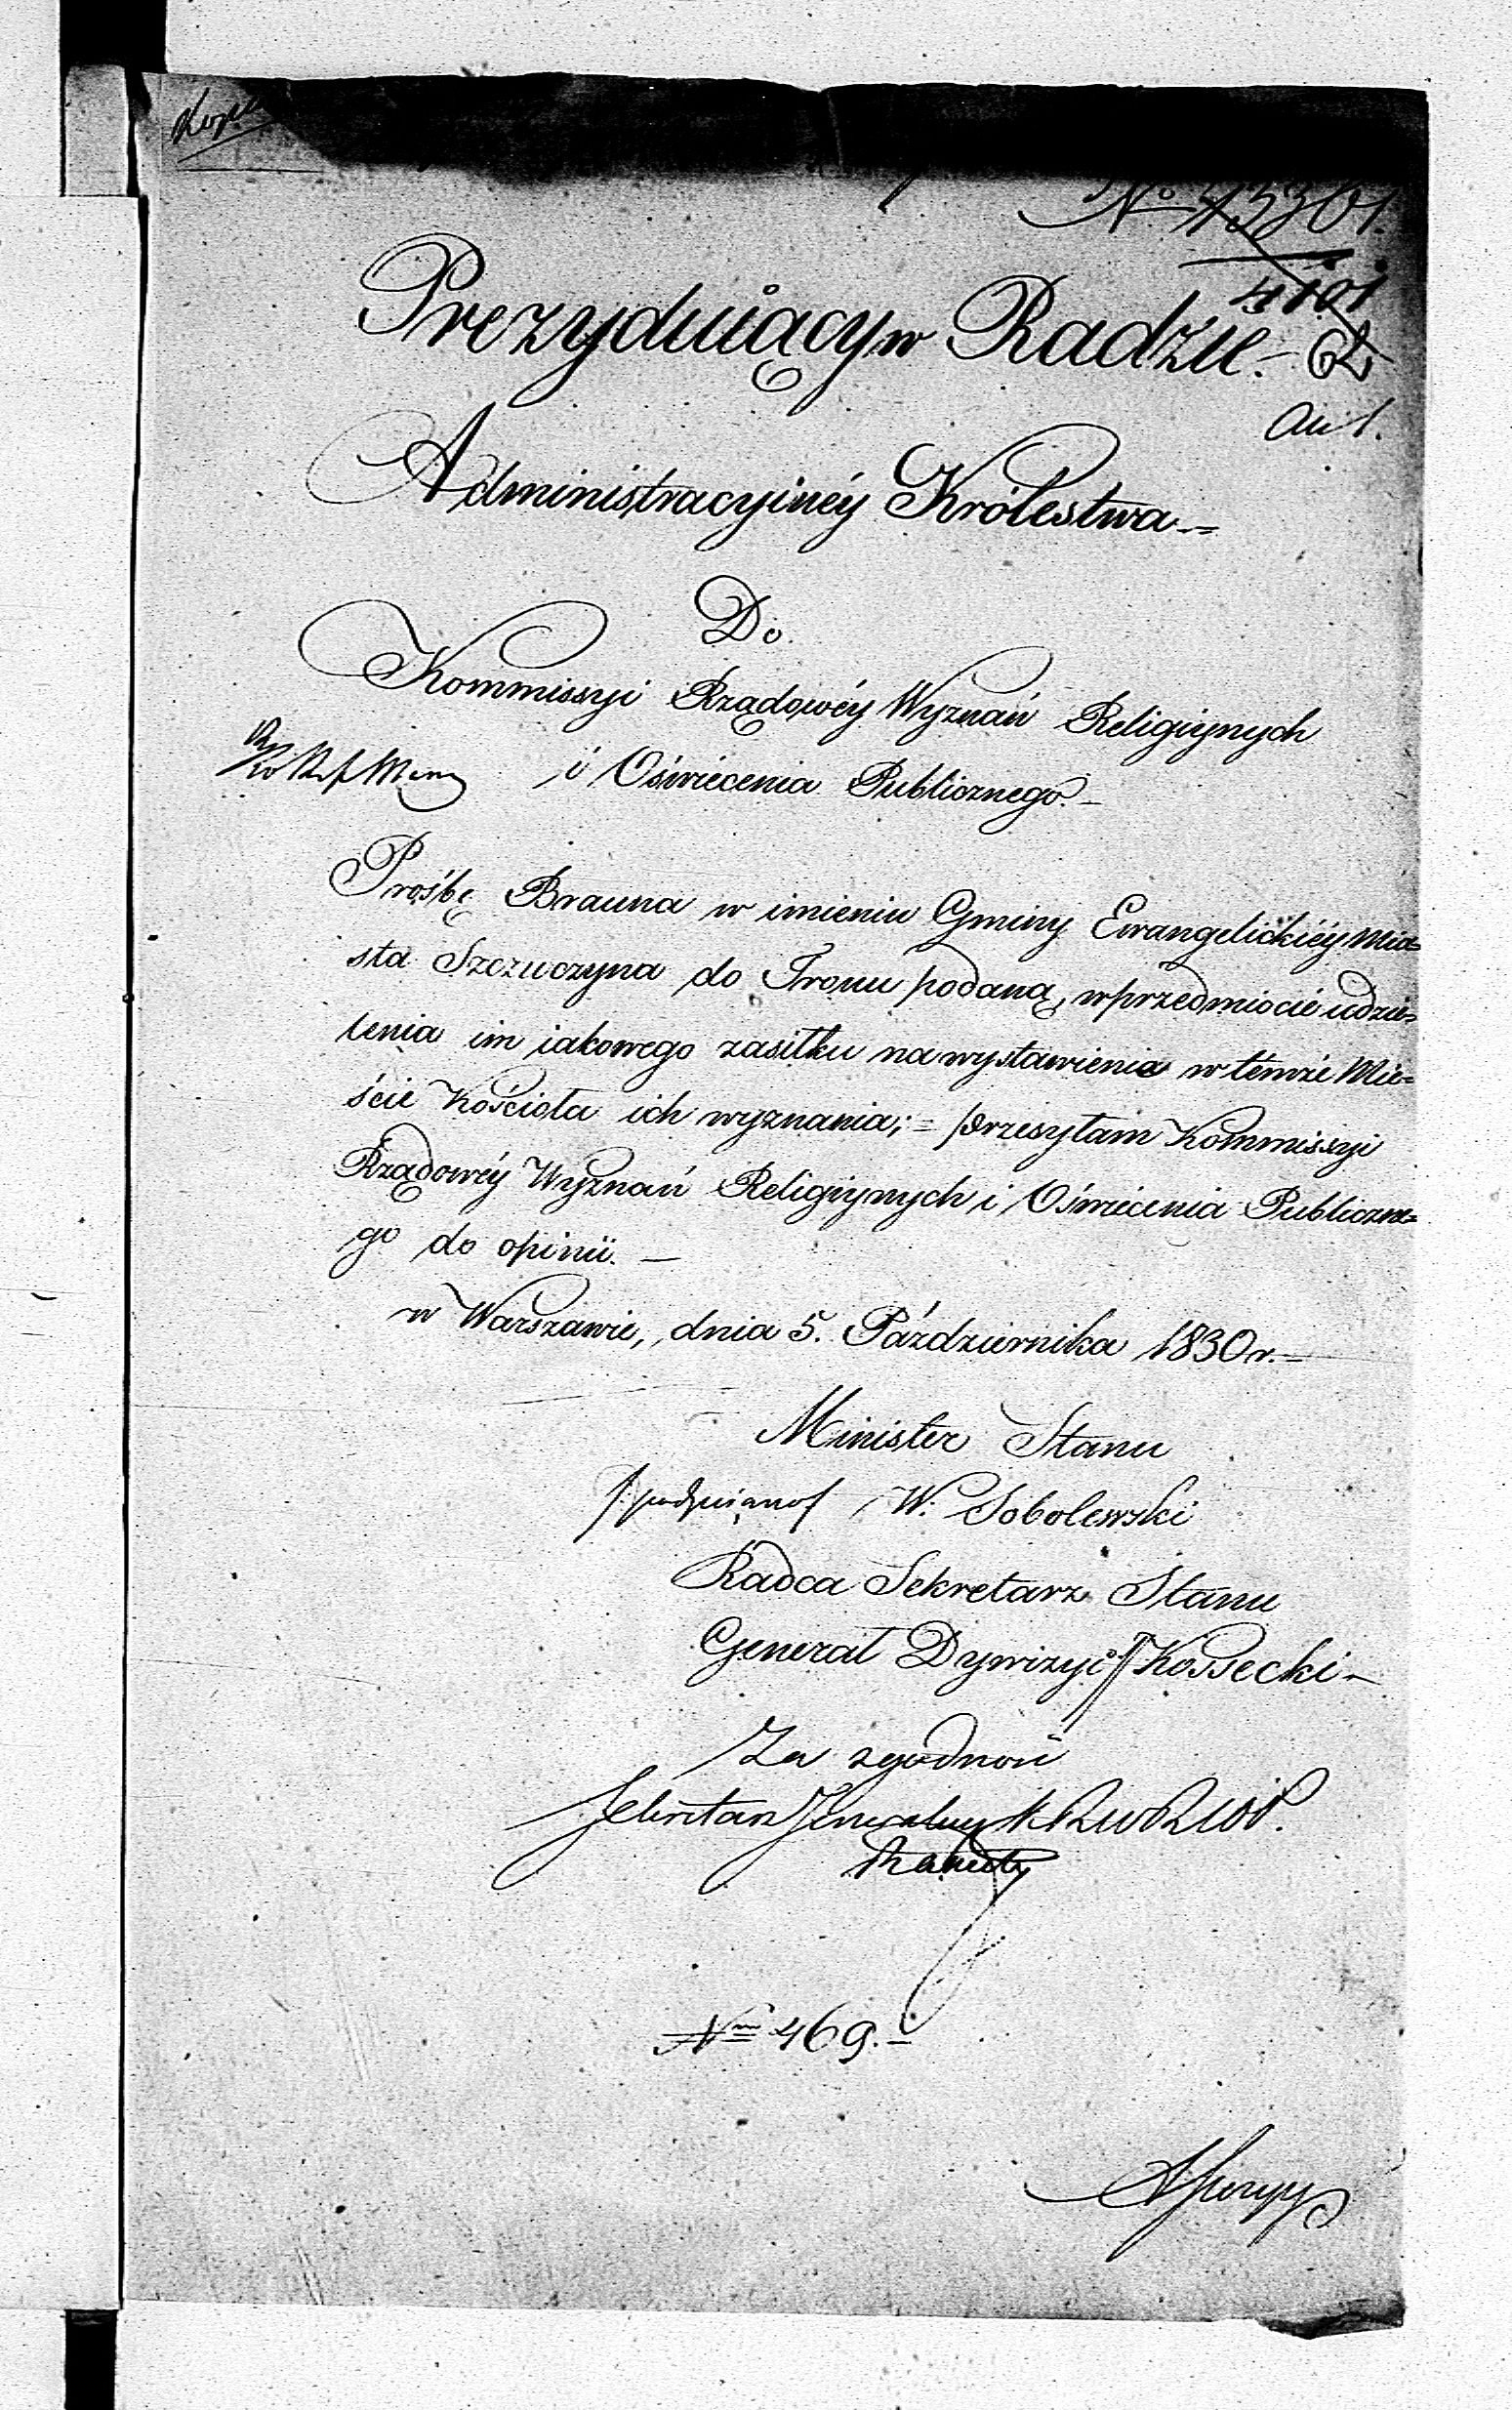 Prezyduiący w Radzie
Administracyinéy Królestwa
Do
Kommissyi Rządowéy Wyznań Religiynych
i Oświecenia Publicznego.
Prośbę Brauna w imieniu Gminy Ewangelickiéy Mia=
sta Szczuczyna do Tronu podaną, w przedmiocie udzie=
lenia im iakowego zasiłku na wystawienie w témże Mie=
ście Kościoła ich wyznania; = przesyłam Kommissyi
Rządowéy Wyznań Religiynych i Oświecenia Publiczne=
go do opinii. —
w Warszawie, dnia 5. Października 1830 r. —
Minister Stanu
/podpisano/ W. Sobolewski
Radca Sekretarz Stanu
Generał Dywizyi // Kossecki —
Za zgodność
Sekretarz Jeneralny
No 469. —